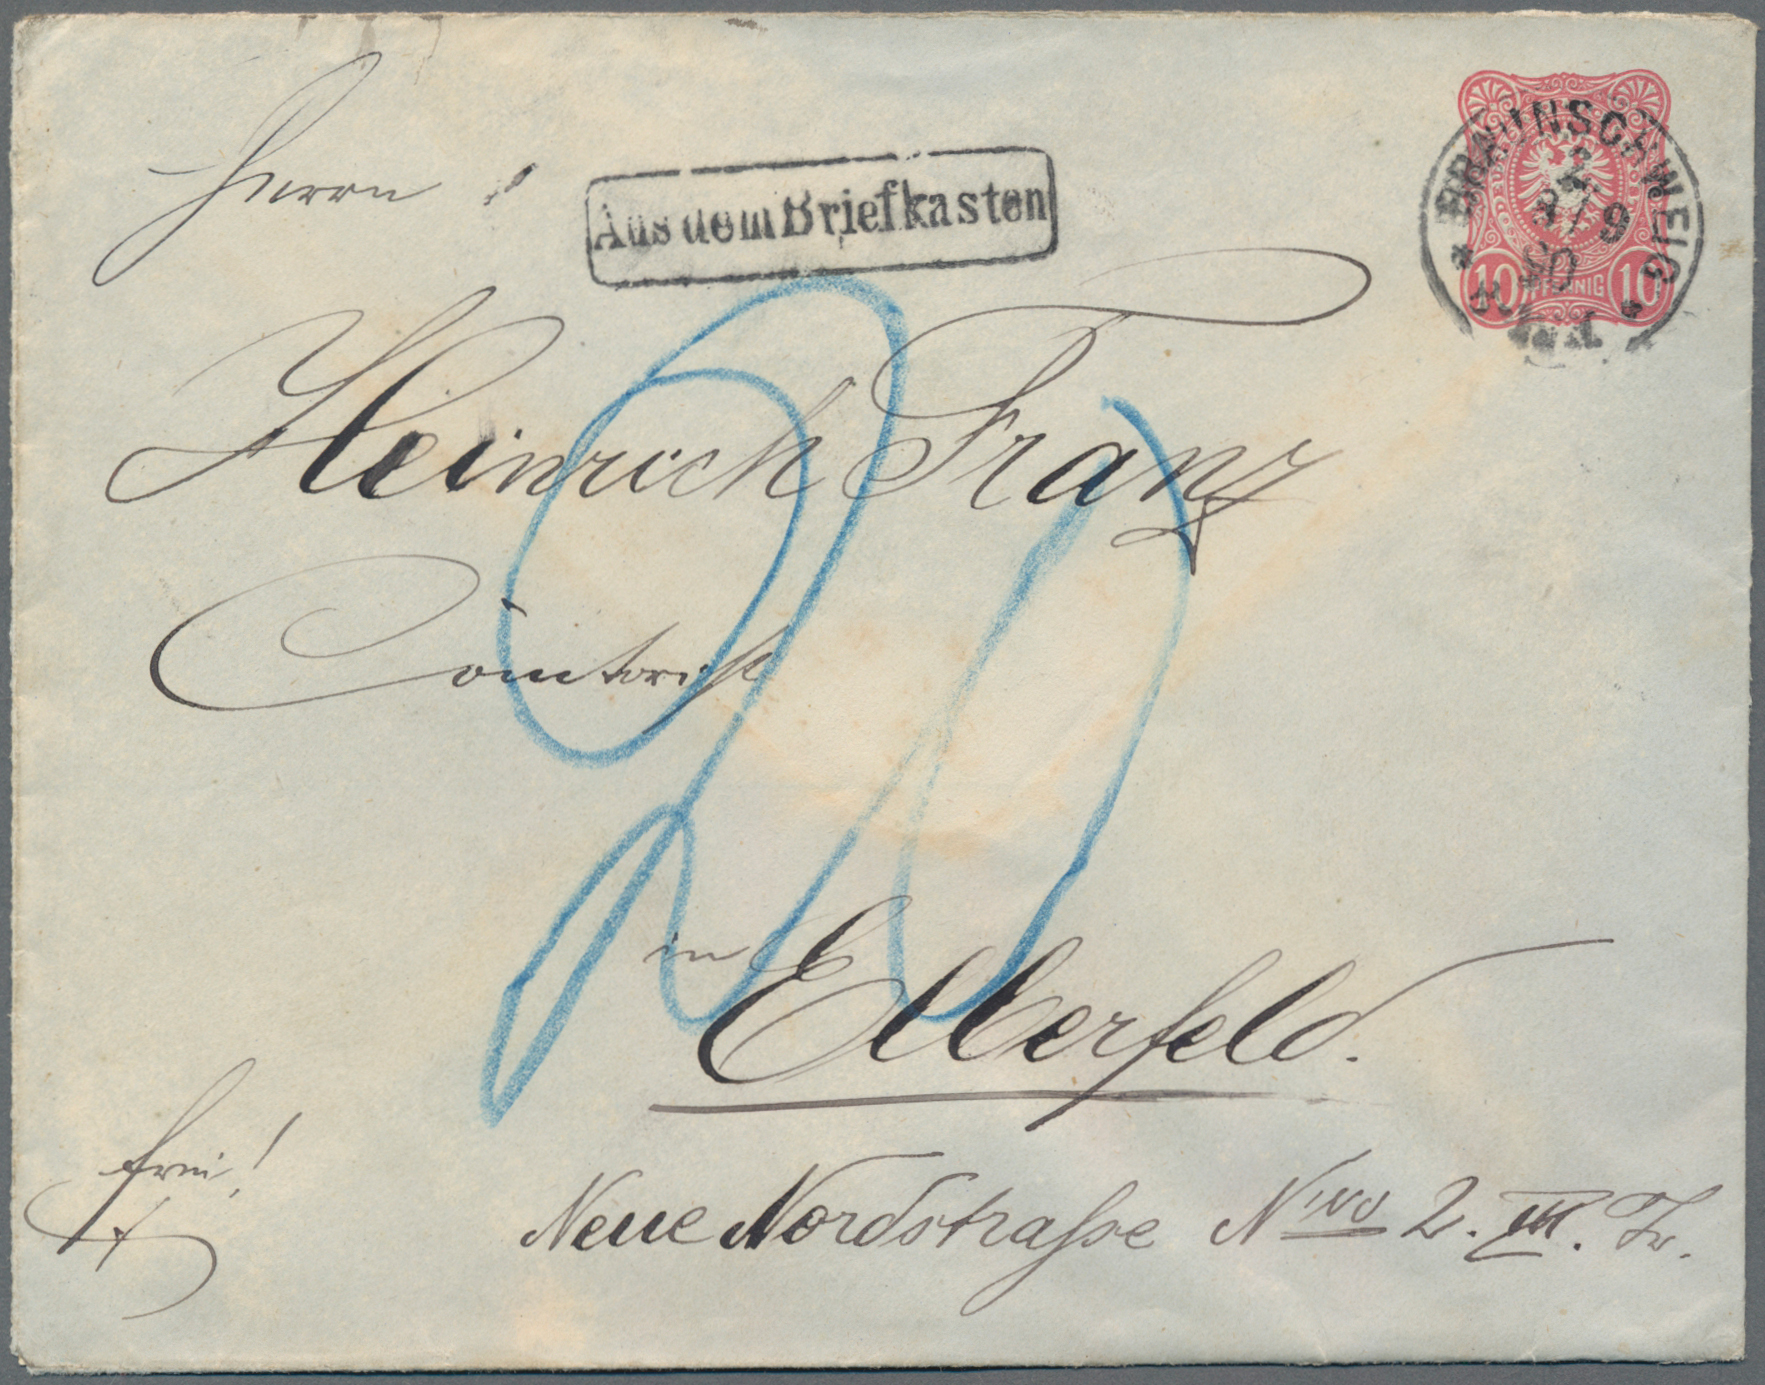 Herrn
Aus dem Briefkasten
BRAUNSCHWEIG
10 PFENNIG 10
Heinrich Franz
Comtorist
20
in Elberfeld.
frei!
Neue Nordstraſse Nro 2. III. Tr.